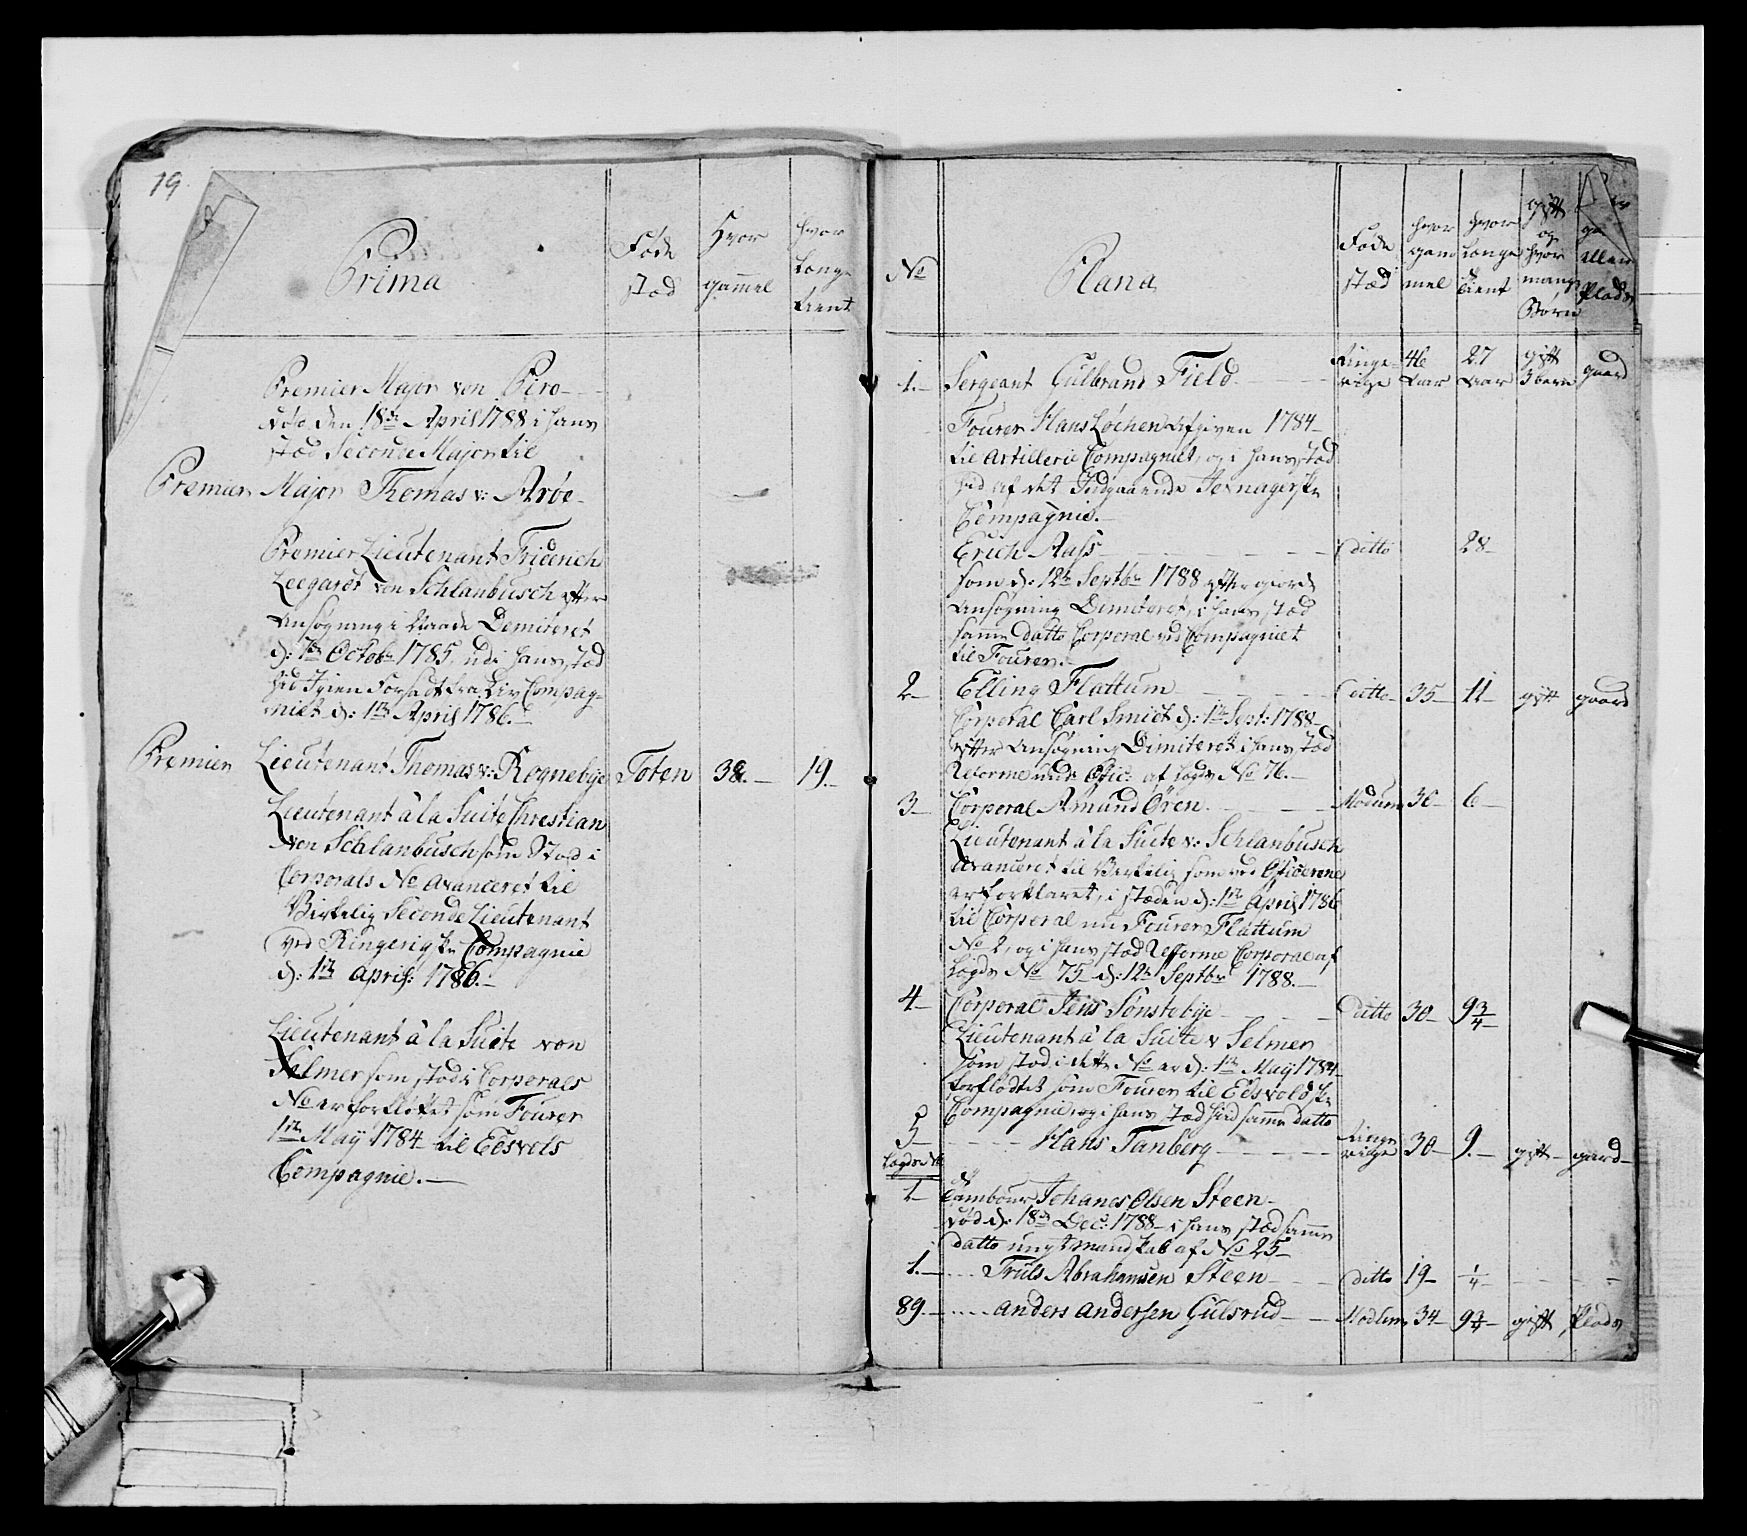 19
Prima
Føde
stæd
Hvor
gammel
hvor
længe
tient
Premier Major von Pira
død den 18de April 1788 i hans
stæd Seconde Major til
Premier Major Thomas v: Arøe
Premier Lieutenant Friderich
Leegardt von Schlanbusch efter
Ansøgning i Naade Demiteret
d: 7de Octobr 1785, udi hans stæd
hid igien forsadt fra Liv Compag-
niet d: 1te April 1786.
Premier Lieutenant Thomas v: Rognebye Toten 38.- 19.-
Lieutenant à la Suite Chrestian
von Schlanbusch som Stod i
Corporals No avanceret til
Virkelig Seconde Lieutenant
ved Ringerigske Compagnie
d: 1te April: 1786.-
Lieutenant à la Suite von
Selmer som stod i Corporals
No er forfløttet som Fourer
1te May 1784 til Edsvols
Compagnie.-
No
Plana
Føde
stæd
hvor
gam
mel
hvor
længe
tient
gift
og
hvor
mange
Børn
gaard
eller
Plads
1.- Sergeant Gulbrand Field Ringe-rige 46 Aar 27 Aar gift 3 børn gaard
Fourer Hans Løchen Afgiven 1784
til Artillerie Compagniet, og i hans stæd
hid af det Indgaaende Jevnagerske
Compagnie.-
Erich Aass Ditto 28-
som d: 12te Septbr 1788 efter giorde
Ansøgning Dimiteret, i hans stæd
samme datto Corporal ved Compagniet
til Fourer.-
2- Elling Flattum Ditto- 35- 11- gift gaard
Corporal Carl Smidt d: 1te Sept: 1788
efter Ansøgning Dimiteret i hans stæd
Reforme Undr Offic: af Lægds No 76.-
3- Corporal Amund Øren Modum 30- 6-
Lieutenant à la Suite v: Schlanbusch
Avanceret til Virkelig som ved Officererne
er forklaret, i stæden d: 1te April 1786
til Corporal nu Fourer Flattum
No 2, og i hans stæd Refforme Corporal af
Lægds No 75 d: 12te Septbr 1788.-
4- Corporal Jens Sønstebye Ditto 30- 9 3/4-
Lieutenant à la Suite v Selmer
som stod i dette No er d: 1te May 1784
forflødtet som Fourer til Edsvoldske
Compagnie, og i hans stæd hid samme datto
5- Hans Tanberg Ringe-rige 30- 9.- gift- gaard-
Lægds No
1- Tambour Johanes Olsen Steen
død d: 18de Dec: 1788- i hans stæd samme
datto ungt mandskab af No 25-
1.- Truls Abrahamsen Steen Ditto 19- 1/4- - -
89.- Anders Andersen Gulsrud Modum 34- 9 3/4- gift Plads